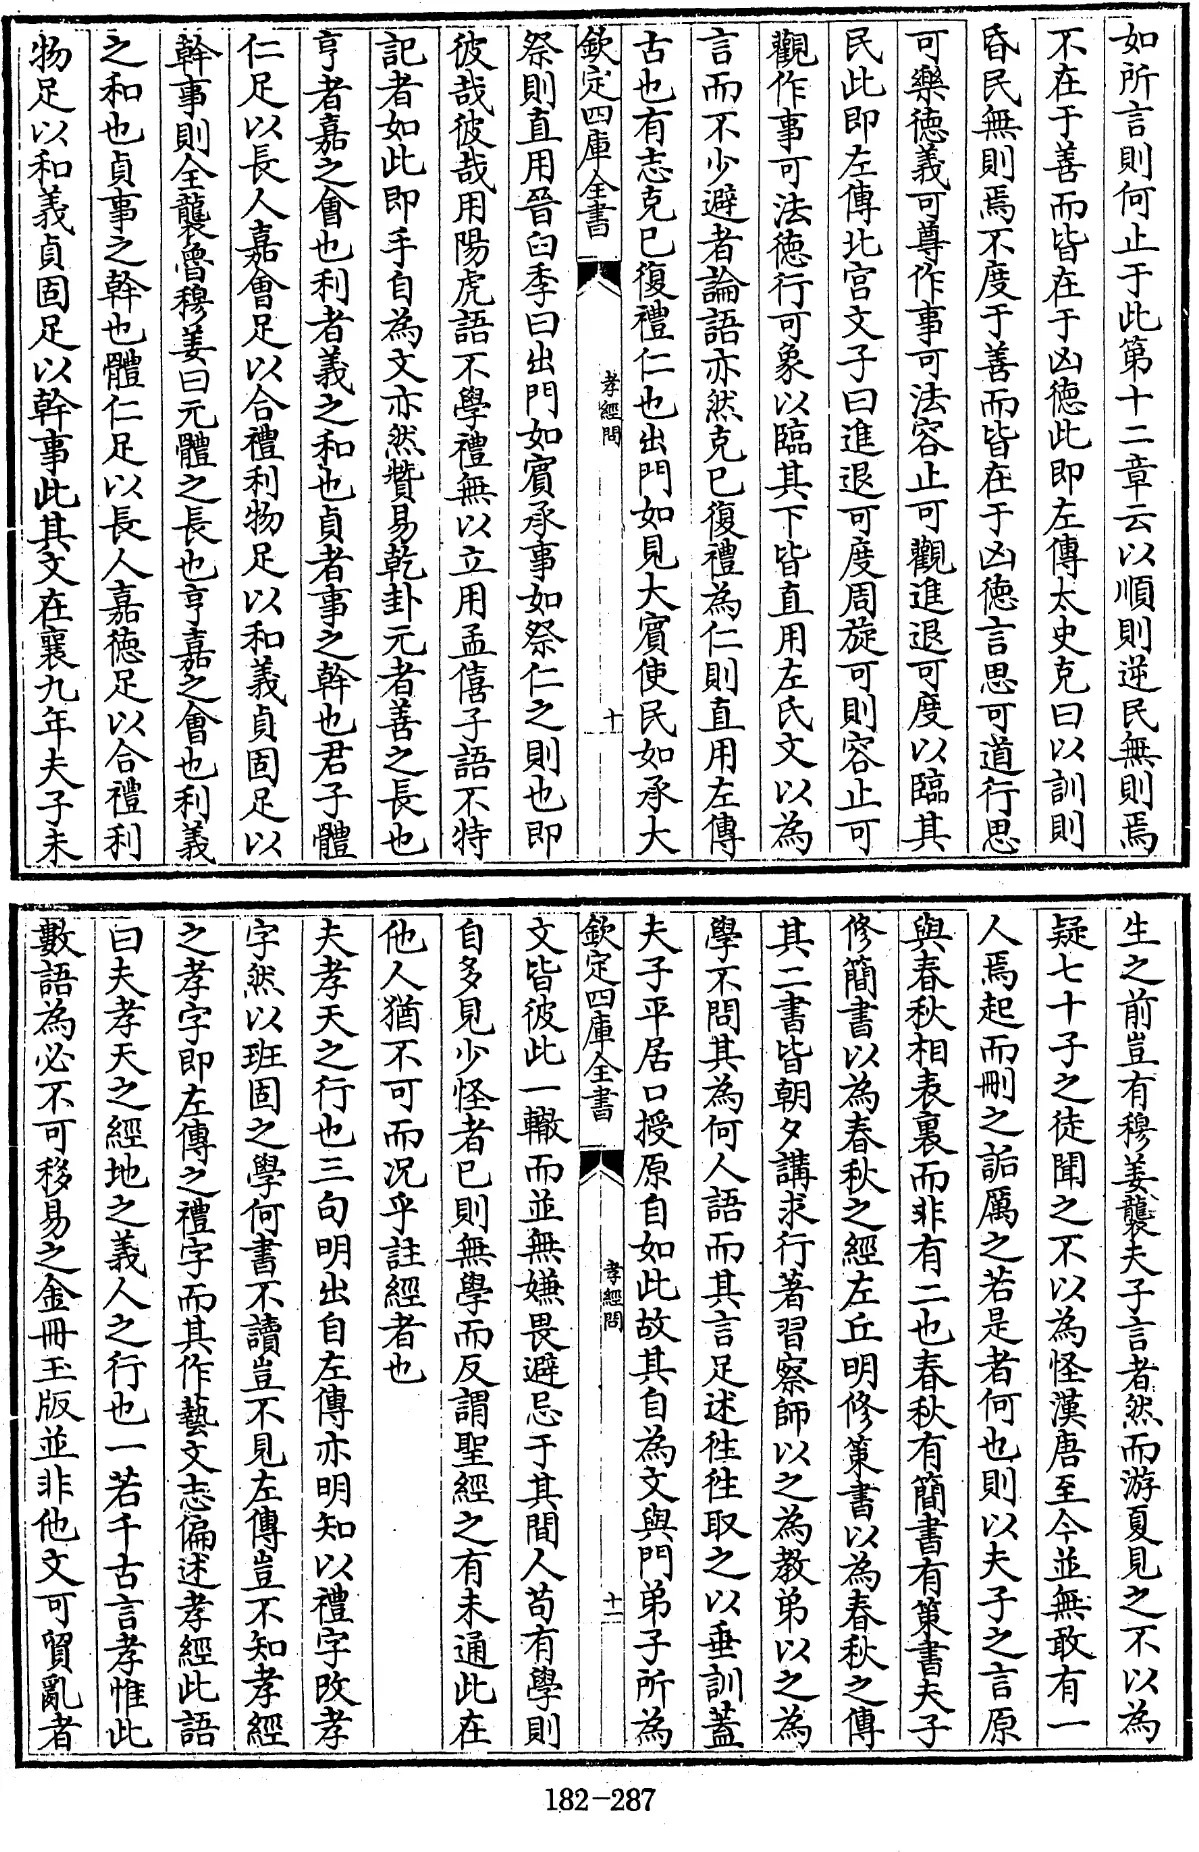 如所言則何止于此第十二章云以順則逆民無則焉
不在于善而皆在于凶徳此即左傳太史克曰以訓則
昏民無則焉不度于善而皆在于凶徳言思可道行思
可樂徳義可尊作事可法容止可觀進退可度以臨其
民此即左傳北宮文子曰進退可度周旋可則容止可
觀作事可法徳行可象以臨其下皆直用左氏文以為
言而不少避者論語亦然克已復禮為仁則直用左傳
古也有志克已復禮仁也出門如見大賓使民如承大
欽定四庫全書
孝經問
十
祭則直用晉臼季曰出門如賓承事如祭仁之則也即
彼哉彼哉用陽虎語不學禮無以立用孟僖子語不特
記者如此即手自為文亦然贊易乾卦元者善之長也
亨者嘉之會也利者義之和也貞者事之幹也君子體
仁足以長人嘉會足以合禮利物足以和義貞固足以
幹事則全襲魯穆姜曰元體之長也亨嘉之會也利義
之和也貞事之幹也體仁足以長人嘉徳足以合禮利
物足以和義貞固足以幹事此其文在襄九年夫子未
生之前豈有穆姜襲夫子言者然而游夏見之不以為
疑七十子之徒聞之不以為怪漢唐至今並無敢有一
人焉起而刪之詬厲之若是者何也則以夫子之言原
與春秋相表裏而非有二也春秋有簡書有策書夫子
修簡書以為春秋之經左丘明修策書以為春秋之傳
其二書皆朝夕講求行著習察師以之為教弟以之為
學不問其為何人語而其言足述徃徃取之以垂訓蓋
夫子平居口授原自如此故其自為文與門弟子所為
欽定四庫全書
孝經問
十一
文皆彼此一轍而並無嫌畏避忌于其間人苟有學則
自多見少怪者已則無學而反謂聖經之有未通此在
他人猶不可而況乎註經者也
夫孝天之行也三句明出自左傳亦明知以禮字改孝
字然以班固之學何書不讀豈不見左傳豈不知孝經
之孝字即左傳之禮字而其作藝文志偏述孝經此語
曰夫孝天之經地之義人之行也一若千古言孝惟此
數語為必不可移易之金冊玉版並非他文可貿亂者
182-287